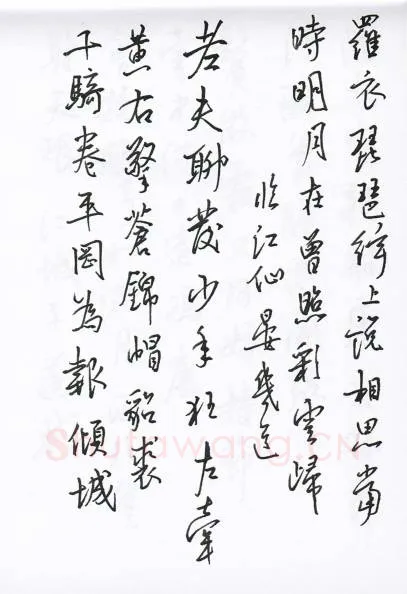 羅衣琵琶絃上說相思當
時明月在曾照彩雲歸
臨江仙 晏幾道
老夫聊發少年狂左牽
黃右擎蒼錦帽貂裘
千騎卷平岡為報傾城
Shufawang.CN